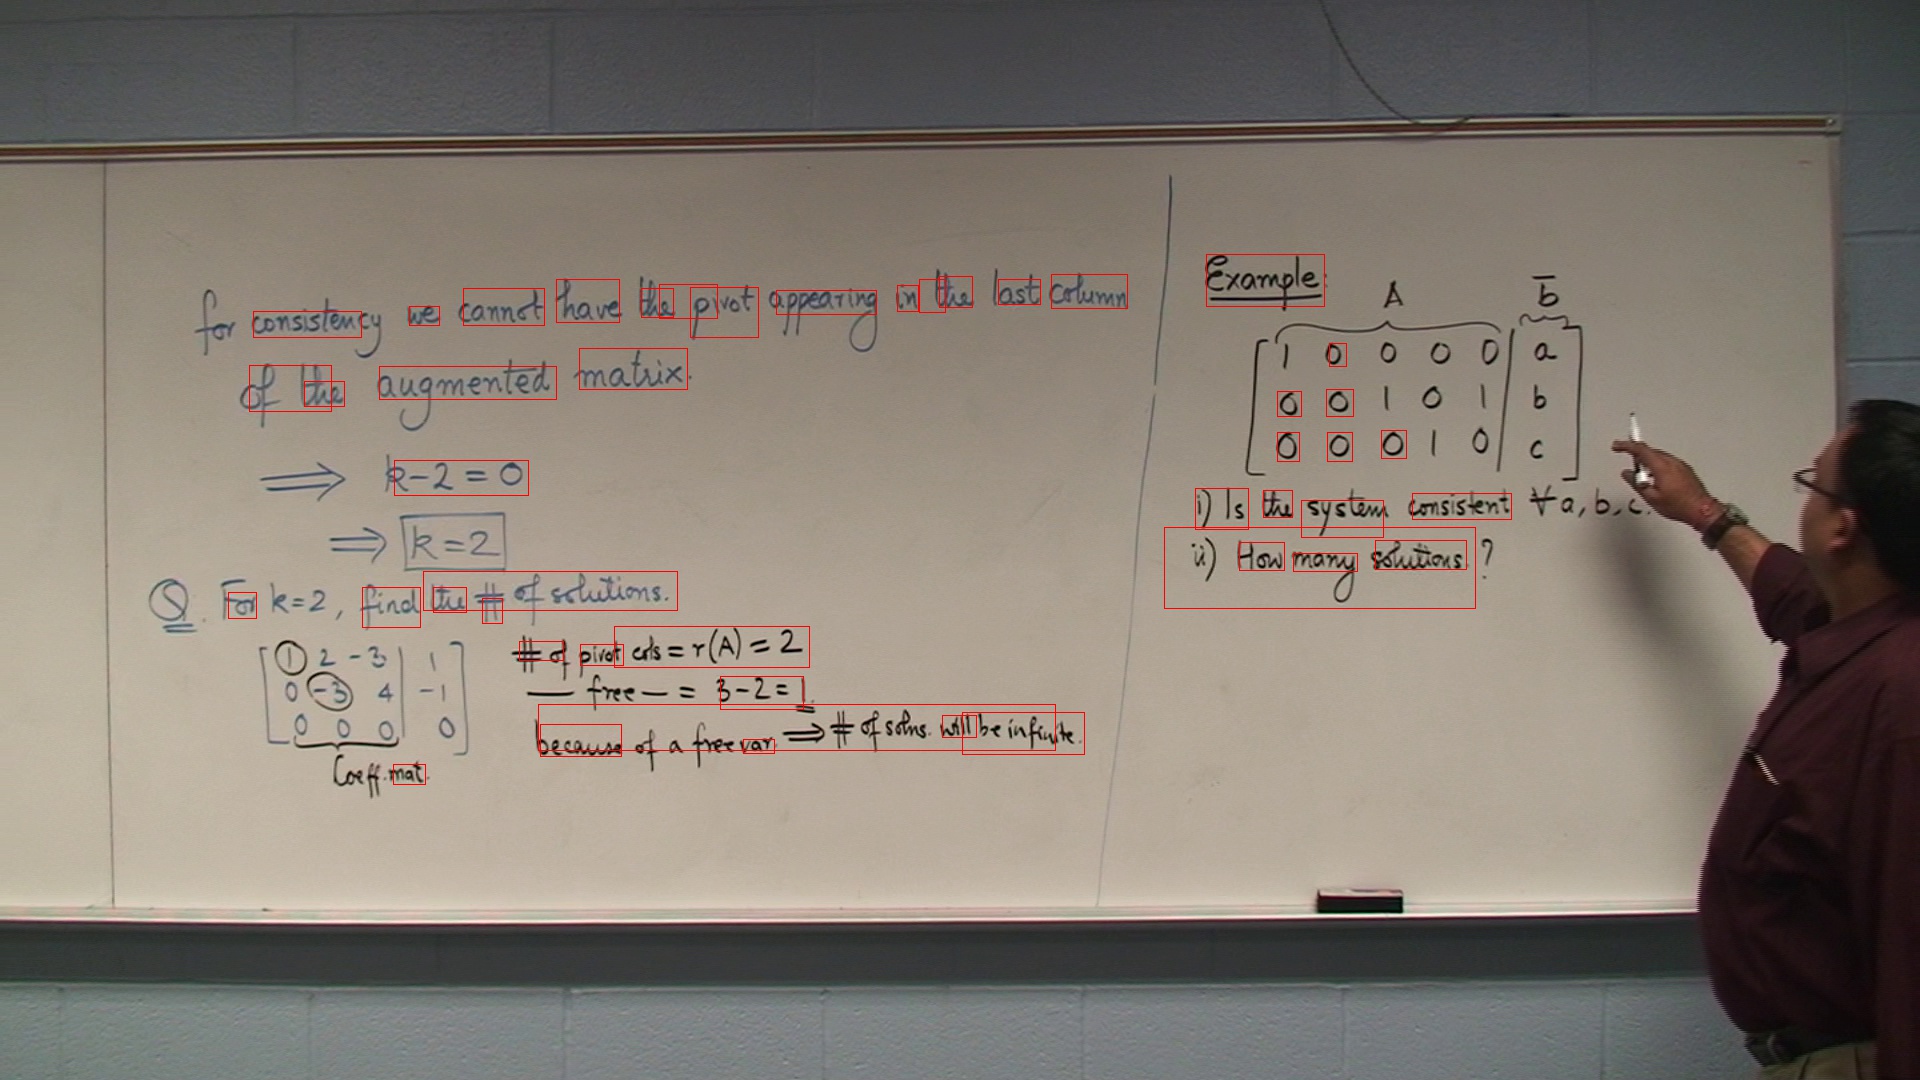 for consistency we cannot have the pivot appearing in the last column
of the augmented matrix.
⟹ k-2 = 0
⟹ k=2
Q. For k=2, find the # of solutions.
1 2 -3 | 1
0 -3 4 | -1
0 0 0 | 0
Coeff. mat.
# of pivot cols = r(A) = 2
— free — = 3-2 = 1.
because of a free var. ⟹ # of solns. will be infinite.
Example:
A b̅
1 0 0 0 0 | a
0 0 1 0 1 | b
0 0 0 1 0 | c
i) Is the system consistent ∀ a, b, c.
ii) How many solutions ?